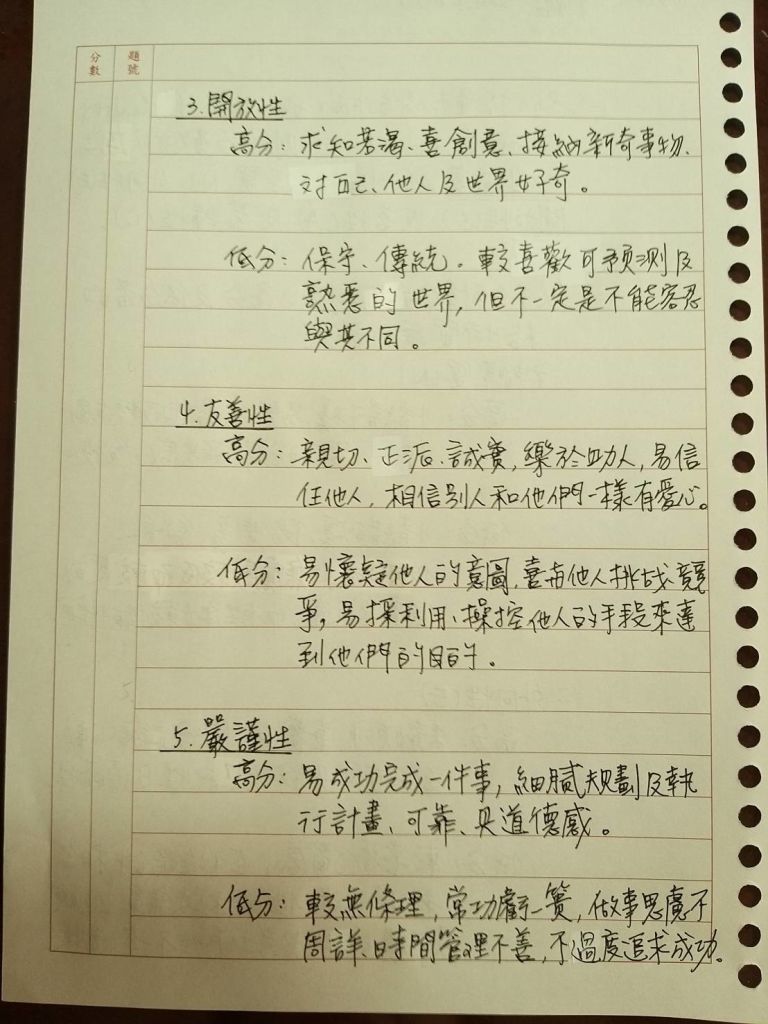 分數
題號
3.開放性
高分：求知若渴、喜創意、接納新奇事物、
对自己、他人及世界好奇。
低分：保守、傳統。較喜歡可預測及
熟悉的世界，但不一定是不能容忍
與其不同。
4.友善性
高分：親切、正派、誠實，樂於助人，易信
任他人，相信別人和他們一樣有愛心。
低分：易懷疑他人的意圖，喜與他人挑战、競
爭，易採利用、操控他人的手段來達
到他們的目的。
5.嚴謹性
高分：易成功完成一件事，細膩規劃及執
行計畫、可靠、具道德感。
低分：較無條理，常功虧一簣，做事思慮不
周詳、時間管理不善，不過度追求成功。